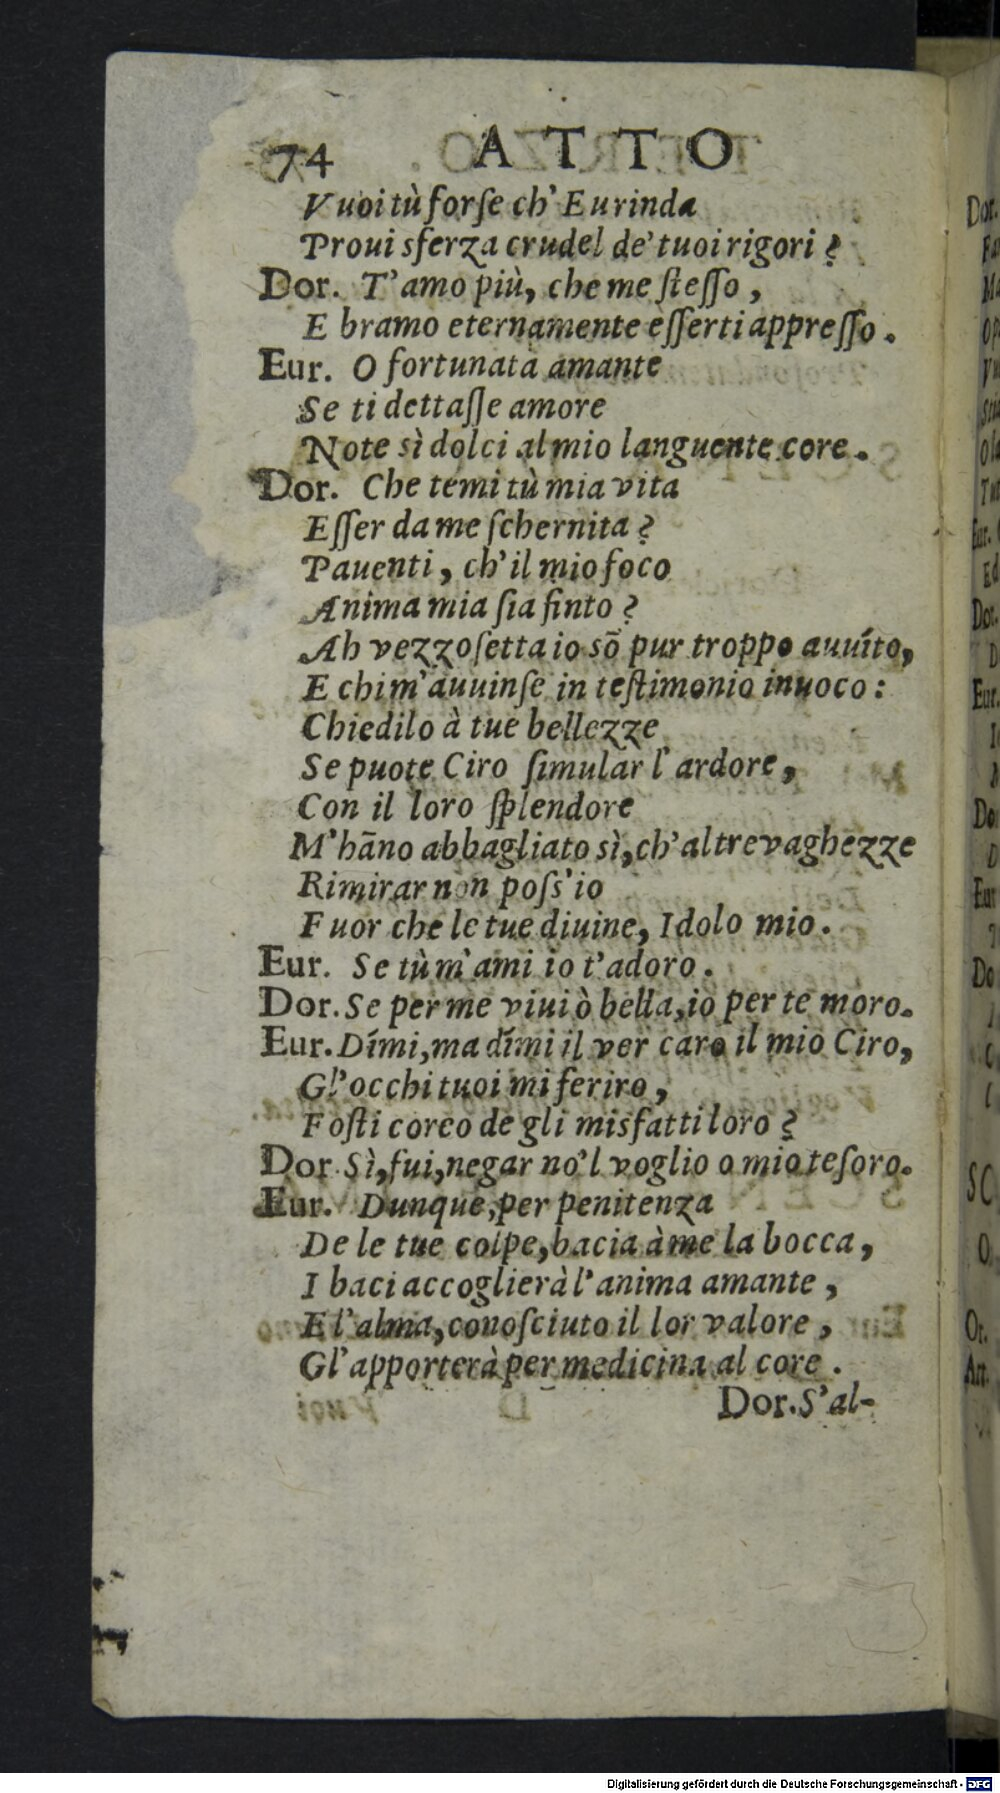 74 ATTO
Vuoi tù forſe ch' Eurinda
Proui sferza crudel de' tuoi rigori?
Dor. T'amo più, che me ſteſſo,
E bramo eternamente eſſerti appreſſo.
Eur. O fortunata amante
Se ti dettaſſe amore
Note sì dolci al mio languente core.
Dor. Che temi tù mia vita
Eſſer da me ſchernita?
Pauenti, ch'il mio foco
Anima mia ſia finto?
Ah vezzoſetta io sõ pur troppo auuĩto,
E chi m'auuinſe in teſtimonio inuoco:
Chiedilo à tue bellezze
Se puote Ciro ſimular l'ardore,
Con il loro ſplendore
M'hãno abbagliato sì, ch'altre vaghezze
Rimirar non poſs'io
Fuor che le tue diuine, Idolo mio.
Eur. Se tù m'ami io t'adoro.
Dor. Se per me viui ò bella, io per te moro.
Eur. Dĩmi, ma dĩmi il ver caro il mio Ciro,
Gl'occhi tuoi mi feriro,
Foſti coreo de gli misfatti loro?
Dor Sì, fui, negar no'l voglio o mio teſoro.
Eur. Dunque, per penitenza
De le tue colpe, bacia à me la bocca,
I baci accoglierà l'anima amante,
E l'alma, conoſciuto il lor valore,
Gl'apporterà per medicina al core.
Dor. S'al-
Dor.
Eur.
Dor.
Eur.
SC
O
Or.
Digitalisierung gefördert durch die Deutsche Forschungsgemeinschaft - DFG